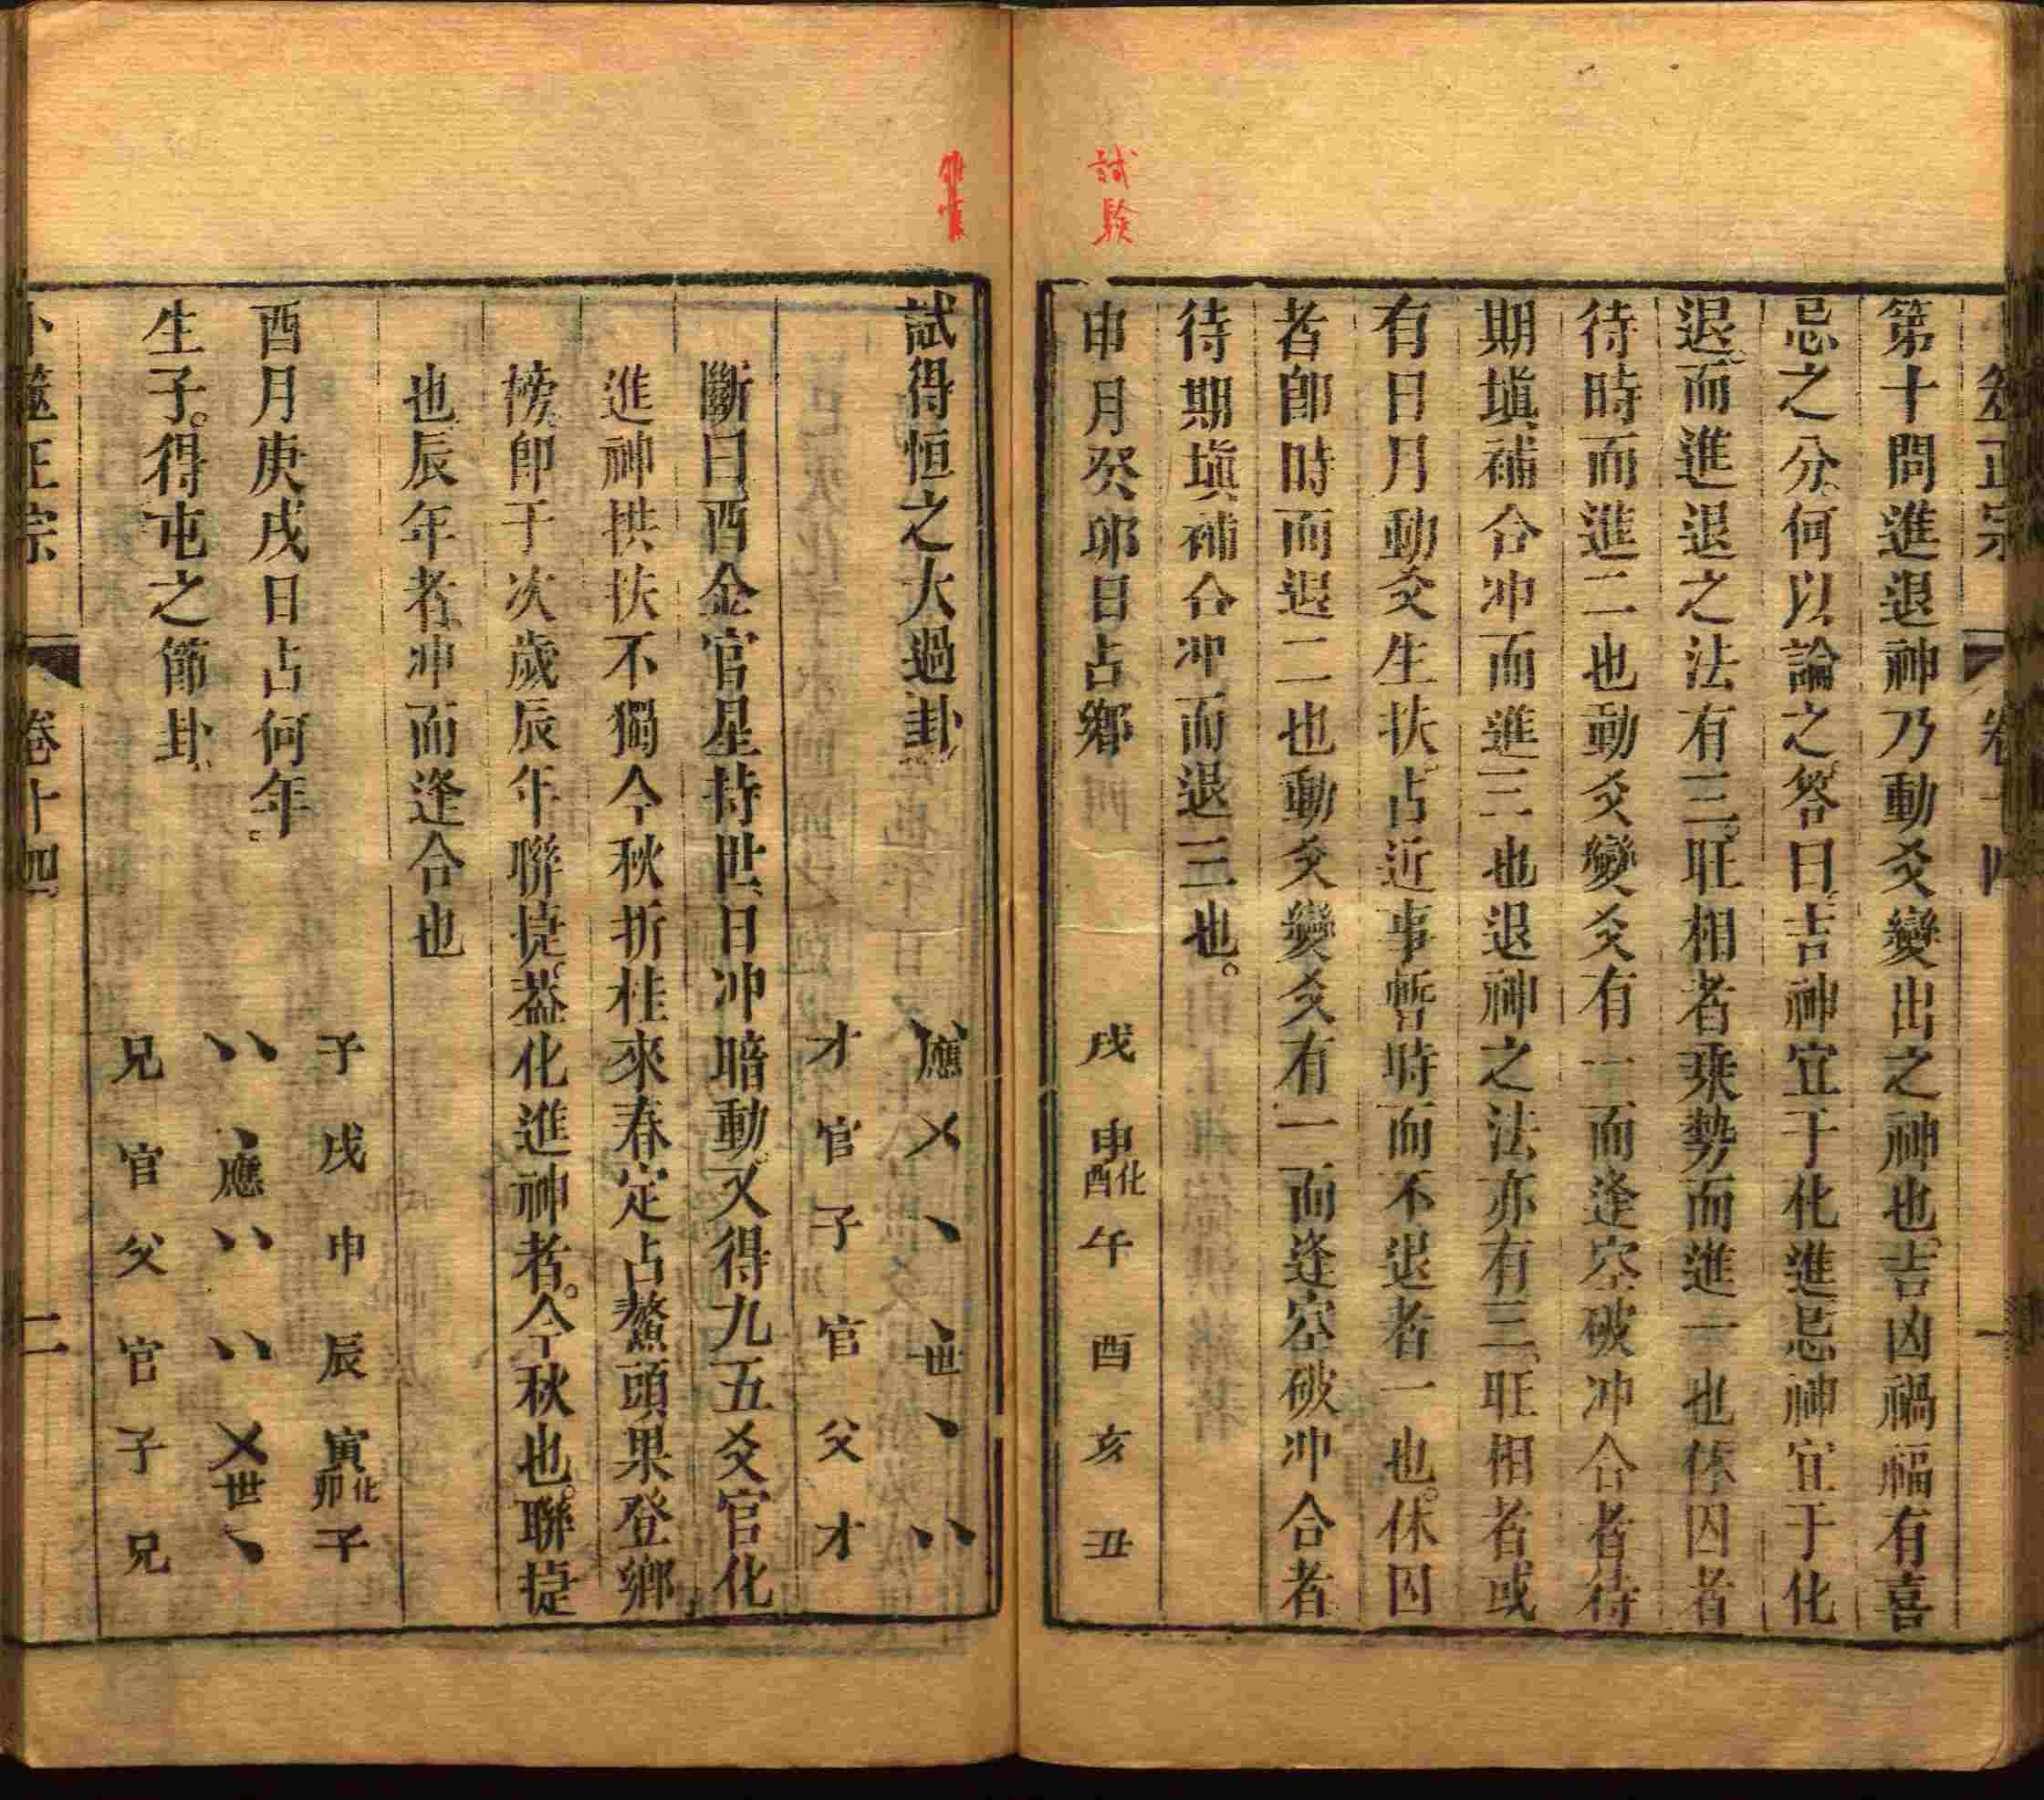 卜筮正宗 卷十四 一
試驗
第十問進退神乃動爻變出之神也吉凶禍福有喜
忌之分何以論之答曰吉神宜于化進忌神宜于化
退而進退之法有三旺相者乘勢而進一也休囚者
待時而進二也動爻變爻有一而逢空破冲合者待
期塡補合冲而進三也退神之法亦有三旺相者或
有日月動爻生扶占近事暫時而不退者一也休囚
者卽時而退二也動爻變爻有一而逢空破冲合者
待期塡補合冲而退三也
申月癸卯日占鄉 戌 申化酉 午 酉 亥 丑
試得恒之大過卦 〃應 乂 、 、世 、 〃
才 官 子 官 父 才
斷曰酉金官星持世日冲暗動又得九五爻官化
進神拱扶不獨今秋折桂來春定占鰲頭果登鄉
榜卽于次歲辰年聯捷葢化進神者今秋也聯捷
也辰年者冲而逢合也
子 戌 申 辰 寅化卯 子
酉月庚戌日占何年 〃 、應 〃 〃 乂世 、
生子得屯之節卦 兄 官 父 官 子 兄
卜筮正宗 卷十四 二